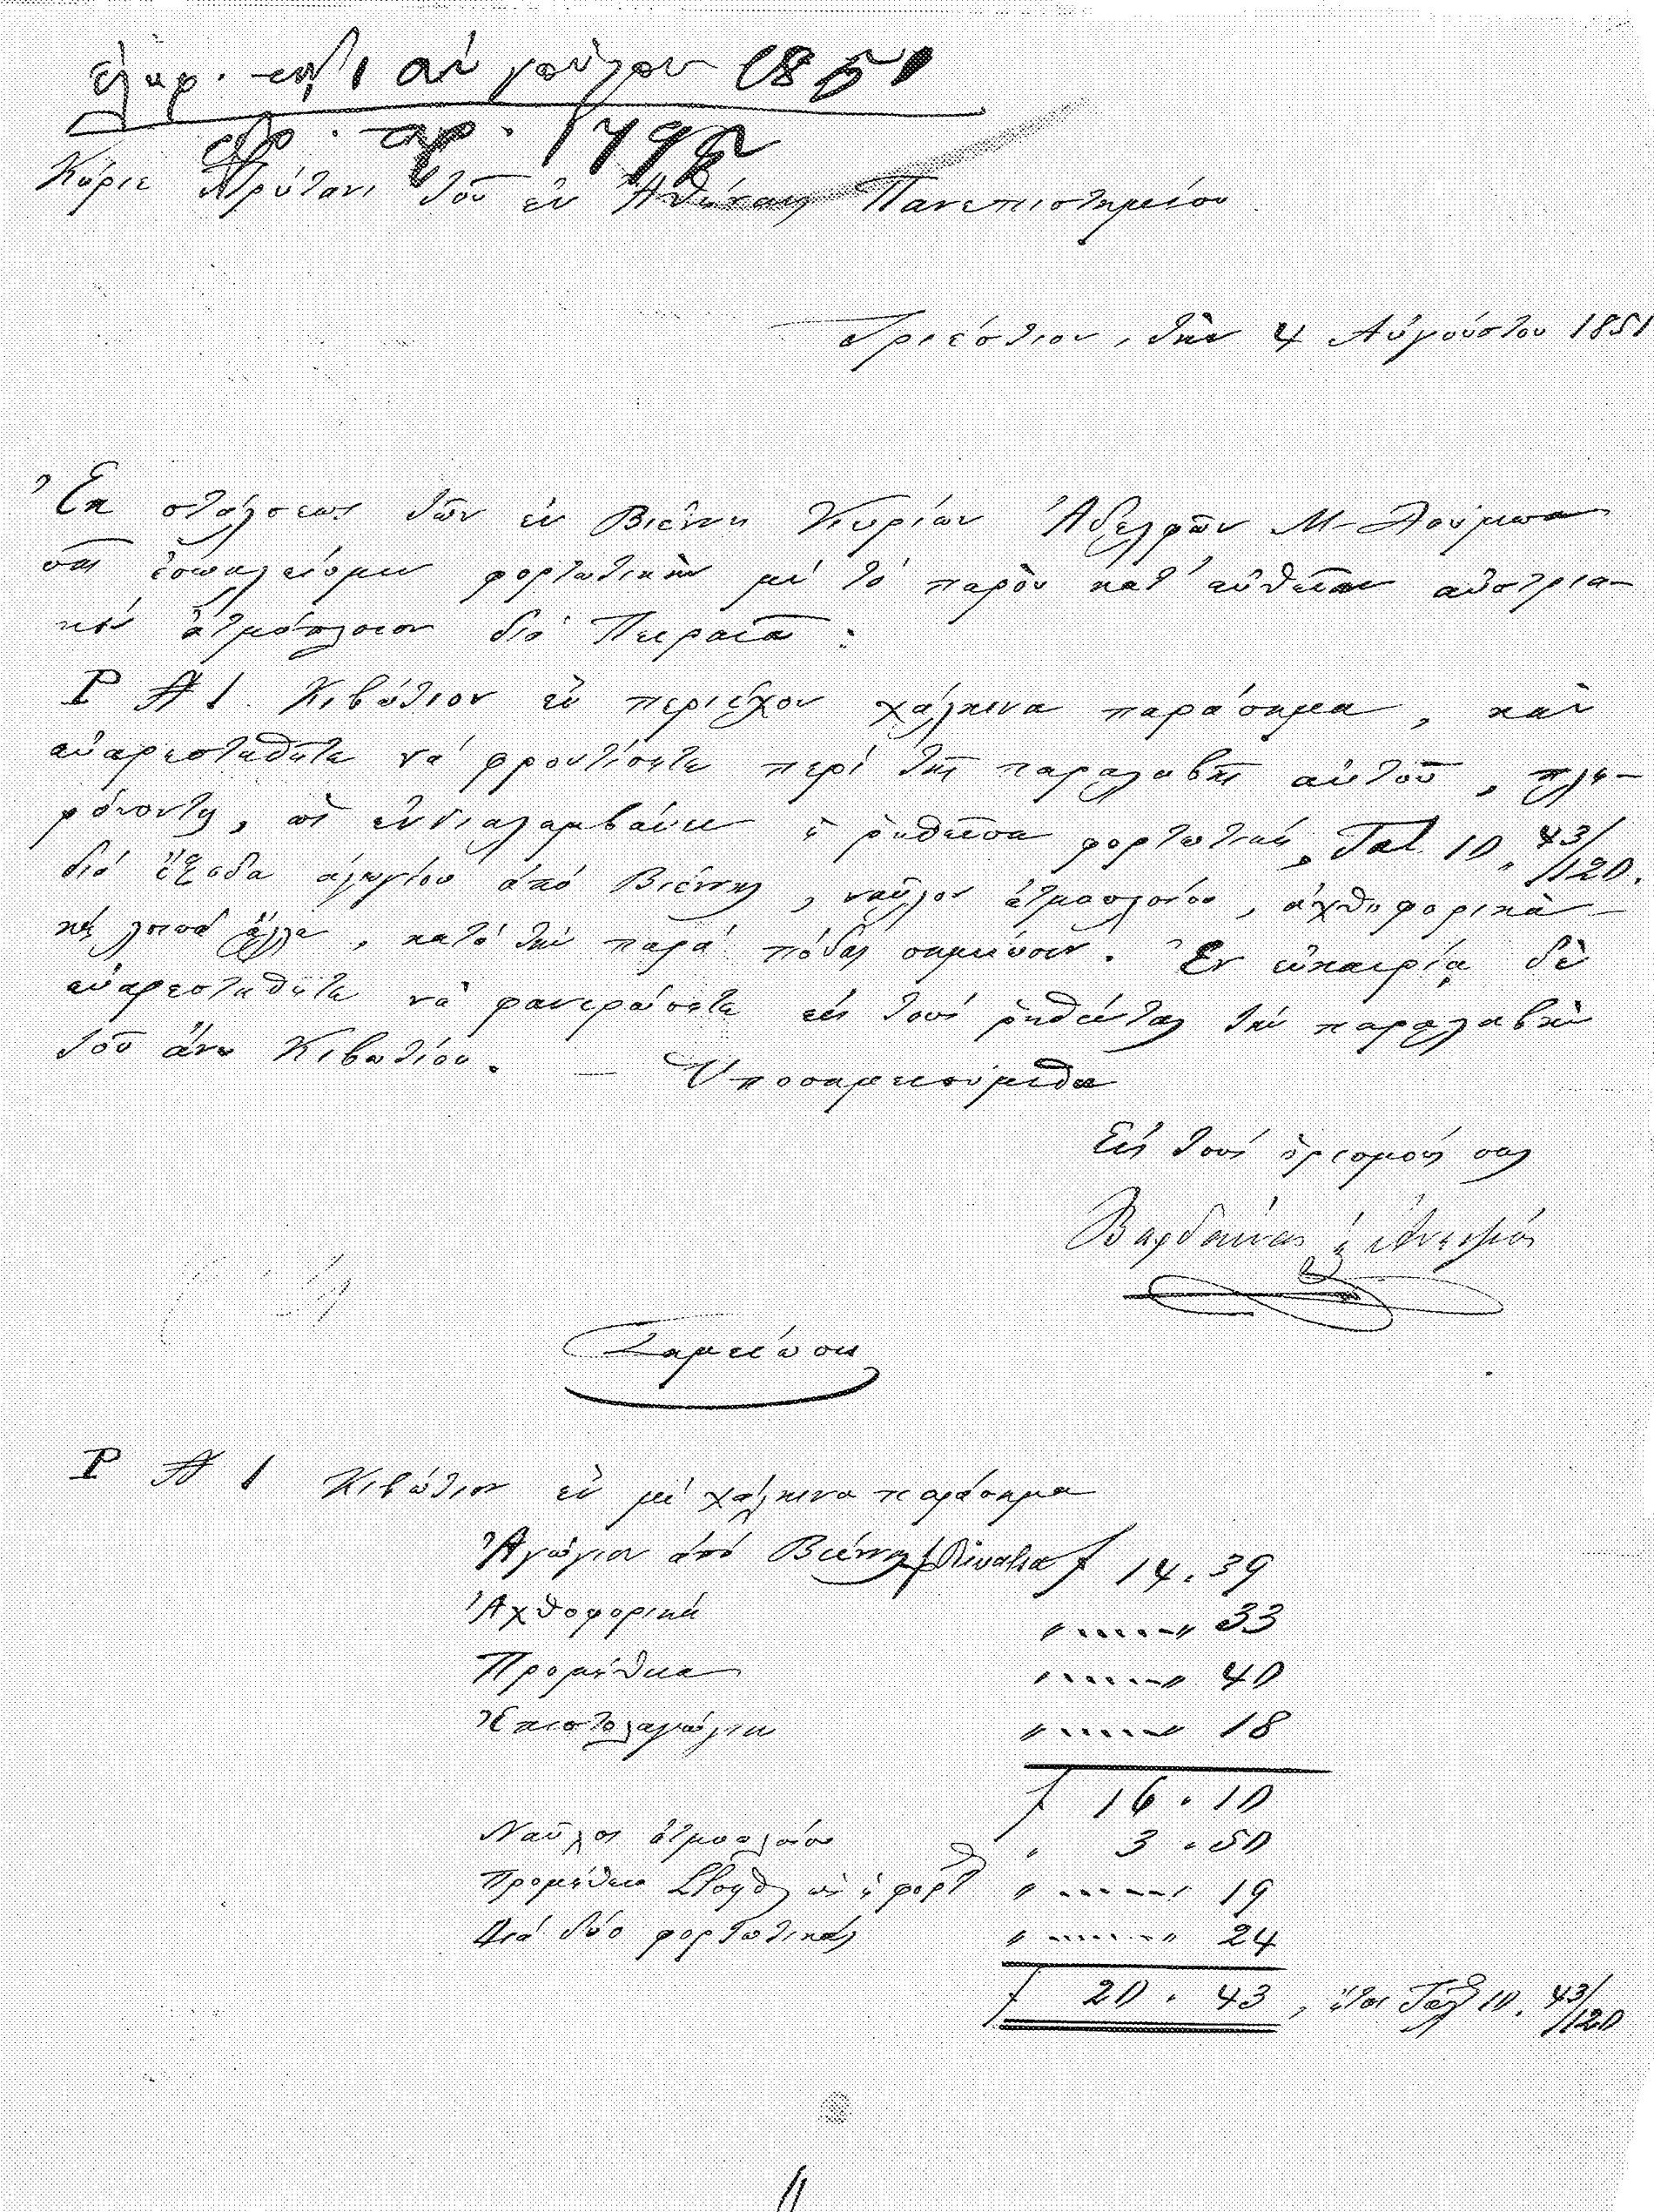 ἐλήφ. τῇ 1 Αὐγούστου 1851
ἀρ. πρ. 1798
Κύριε Πρύτανι τοῦ ἐν Ἀθήναις Πανεπιστημείου
Τριέστιον, τὴν 4 Αὐγούστου 1851
Ἐκ στάλσεως τῶν ἐν Βιέννῃ Κυρίων Ἀδελφῶν Μ-Λούμπα
σᾶς ἐσωκλείομεν φορτωτικὴν μὲ τὸ παρὸν κατ' εὐθεῖαν αὐστρια-
κὸν ἀτμόπλοιον διὰ Πειραιᾶ:
P № 1. Κιβώτιον ἓν περιέχον χάλκινα παράσημα, καὶ
εὐαρεστηθῆτε νὰ φροντίσητε περὶ τῆς παραλαβῆς αὐτοῦ, πλη-
ρόνοντες, ὡς ἐνδιαλαμβάνει ἡ ῥηθεῖσα φορτωτική, Ταλ. 10 „ 43/120.
διὰ ἔξοδα ἀγωγίου ἀπὸ Βιέννης, ναῦλον ἀτμοπλοίου, ἀχθοφορικὰ
καὶ λοιπὰ ἄλλα, κατὰ τὴν παρὰ πόδας σημείωσιν. Ἐν εὐκαιρίᾳ δὲ
εὐαρεστηθῆτε νὰ φανερώσητε εἰς τοὺς ῥηθέντας τὴν παραλαβὴν
τοῦ ἄνω Κιβωτίου. — Ὑποσημειούμεθα
Εἰς τοὺς ὁρισμούς σας
Σημείωσις
P № 1 Κιβώτιον ἓν μὲ χάλκινα παράσημα
Ἀγώγιον ἀπὸ Βιέννης f 14.39
Ἀχθοφορικά „ ...... „ 33
Προμήθεια „ ...... „ 40
Ἐπιστολαγώγια „ ...... „ 18
f 16.10
Ναῦλος ἀτμοπλοίου „ 3.50
Προμήθεια ὡς ἡ φορτ „ ...... „ 19
Διὰ δύο φορτωτικάς „ ...... „ 24
f 20.43, ἤτοι Ταλ 10. 43/120